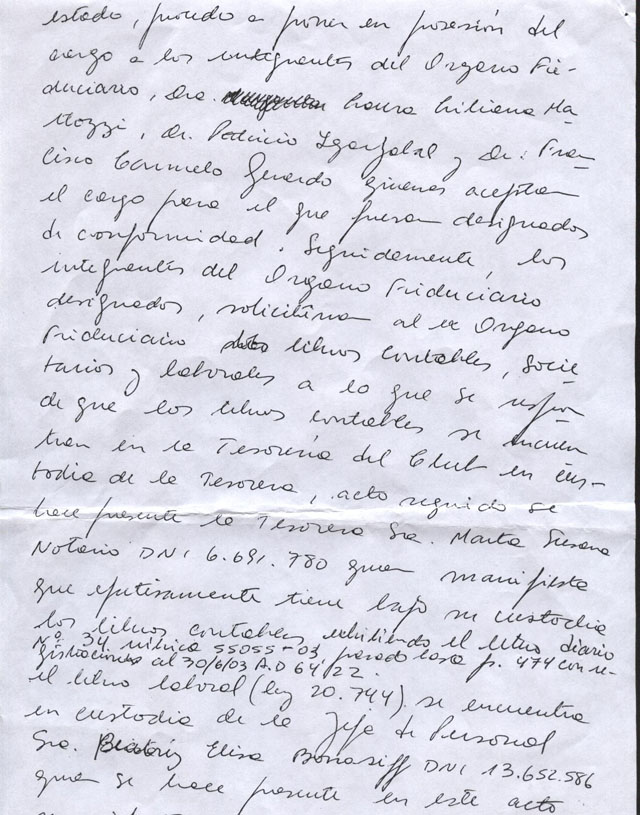 estado, procedo a poner en posesión del
cargo a los integrantes del Organo Fi-
duciario, Dra. Laura Liliana Ma-
ttozzi, Dr. Patricio Ygarzabal y Dr. Fran-
cisco Carmelo Gerardo quienes aceptan
el cargo para el que fueran designados
de conformidad. Seguidamente, los
integrantes del Organo Fiduciario
designados, solicitan al ex Organo
Fiduciario libros contables, socie-
tarios y laborales a lo que se respon
de que los libros contables se encuen
tran en la Tesorería del Club en cus-
todia de la Tesorera, acto seguido se
hace presente la Tesorera Sra. Marta Susana
Notario DNI 6.691.780 quien manifiesta
que efectivamente tiene bajo su custodia
los libros contables exhibiendo el libro diario
Nº 34 rúbrica 55055-03 pasado hasta fs. 474 con re-
gistraciones al 30/6/03 A.D 64/22.
el libro laboral (ley 20.744) se encuentra
en custodia de la Jefe de Personal
Sra. Beatriz Elisa DNI 13.652.586
quien se hace presente en este acto